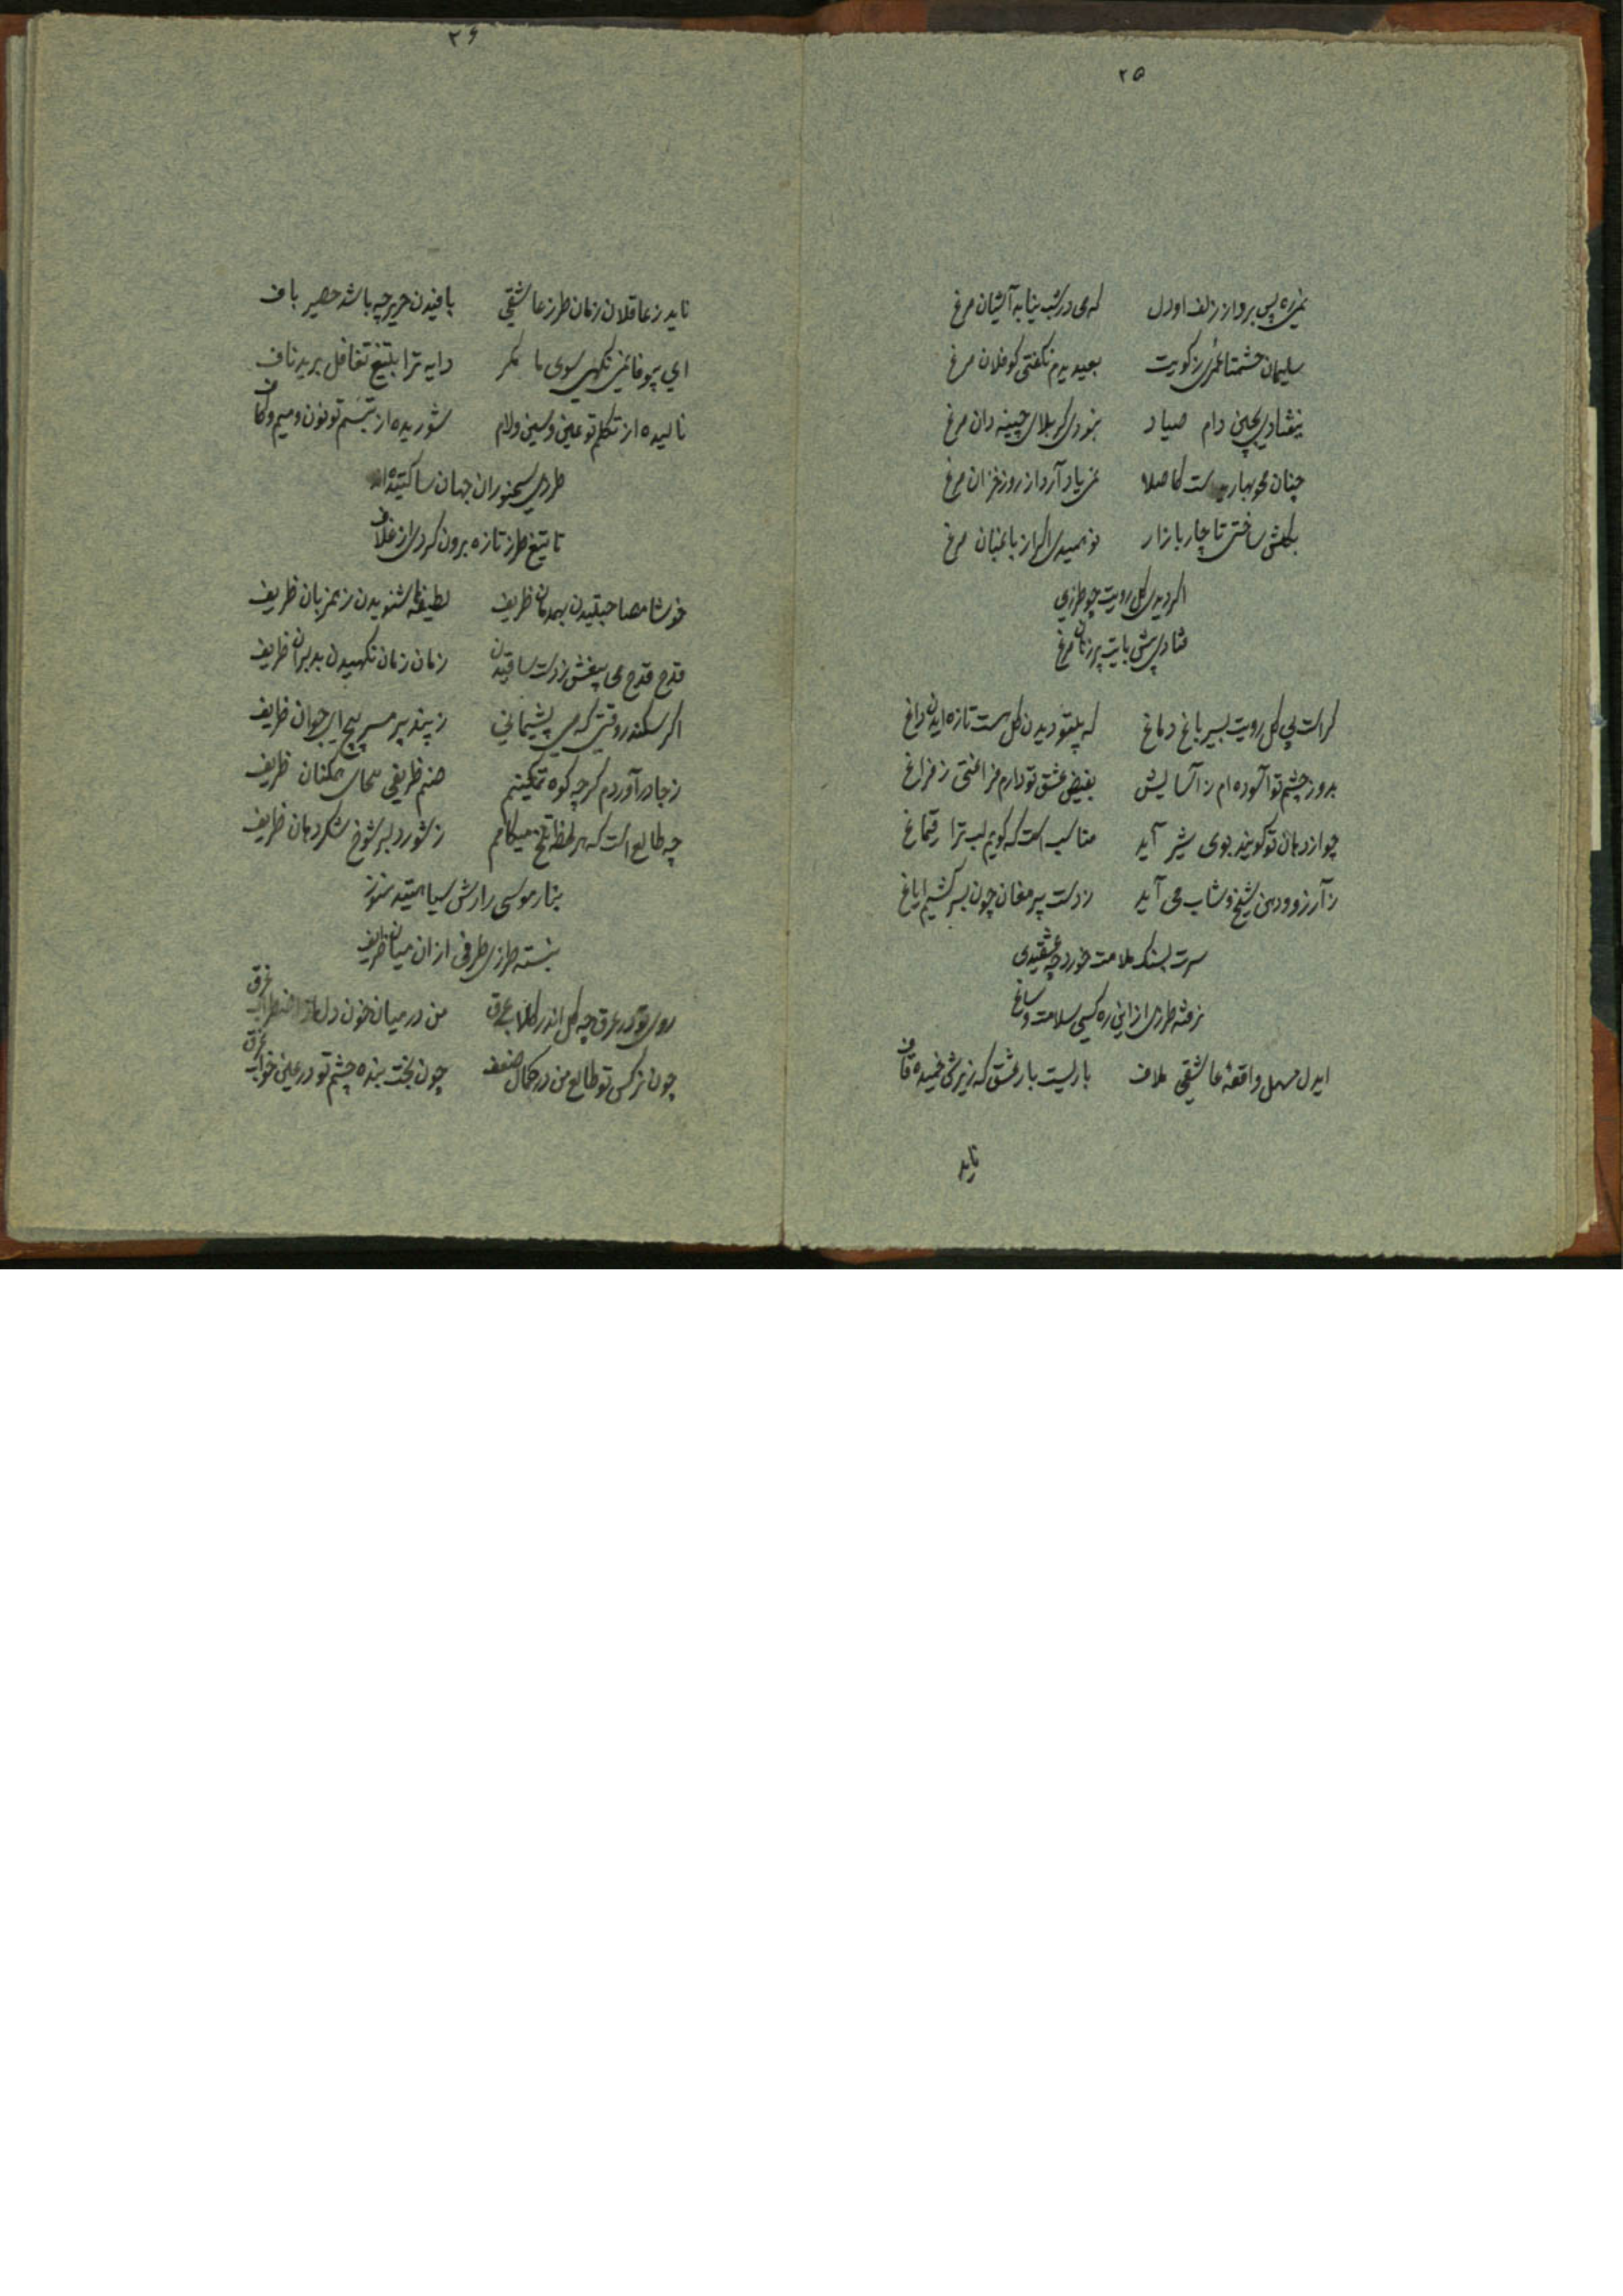 ۲۵
نمی‌ره پس برواز زلف او دل که می در شب نیابه آشیان مرغ
سلیمان حشمتا عمری ز کویت بعیدیدم نکفتی کو فلان مرغ
بچین دام صیاد نمودی کربلای چینه دان مرغ
چنان محو بهار ست کاصلا نمی یاد آرد از روز خزان مرغ
بکلش ساختی تا چار بازار نومیدی اکر از باغبان مرغ
اکر دیدی کل رویت چو طرزی
فتادی پیش پایت پر زنان مرغ
کراست بی کل رویت بسیر باغ دماغ که بیتو دیدن کل هست تازه ایدن داغ
بدور چشم تو آسوده ام ز آسایش بفیض عشق تو دارم فراغتی ز فراغ
چو از دهان تو کویند بوی شیر آید مناسب است که کویم لب ترا قیماغ
ز آرزو دهن شیخ و شاب می آید ز دست پیر مغان چون بسر کشیم ایاغ
سرت بسنک ملامت خورد چه عشقیدی
نرفته طرزی ازاین ره کسی سلامت و ساغ
ایدل مسهل واقعهٔ عاشقی ملاف باریست بار عشق که زیرش خمیده قاف
ناید
۲۶
ناید ز عاقلان زمان طرز عاشقی بافیدن حریر چه باشد حصیر باف
ای بیوفا نمی نکهی سوی ما مکر دایه ترا بتیغ تغافل بریده ناف
نالیده از تکلم تو عین و سین و لام شوریده از تبسم تو نون و میم و کاف
طرزی سخنوران جهان ساکتیده‌اند
تا تیغ طرز تازه برون کردی از غلاف
خوشا مصاحبتیدن بهمدمان ظریف لطیفها شنویدن ز همزبان ظریف
قدح قدح می بیغش ز دست ساقیدن زمان زمان نکهیدن بدلبران ظریف
اکر سکندر وقتی که می پشیمانی ز پند پیر مسر پیچ ای جوان ظریف
ز جا درآوردم کرچه کوه تمکینم صنم ظریفی همکنان ظریف
چه طالع است که هر لحظه تلخ میکامم ز شور دلبر شوخ شکردهان ظریف
بنار موسی رارش سیاهتیده هنوز
نبسته طرزی طرفی از ان میان ظریف
روی تو در عرق چه کل اندر کلاب غرق من در میان خون دل از اضطراب غرق
چون نرکس تو طالع من در کمال ضعف چون بخت بنده چشم تو در عین خواب غرق